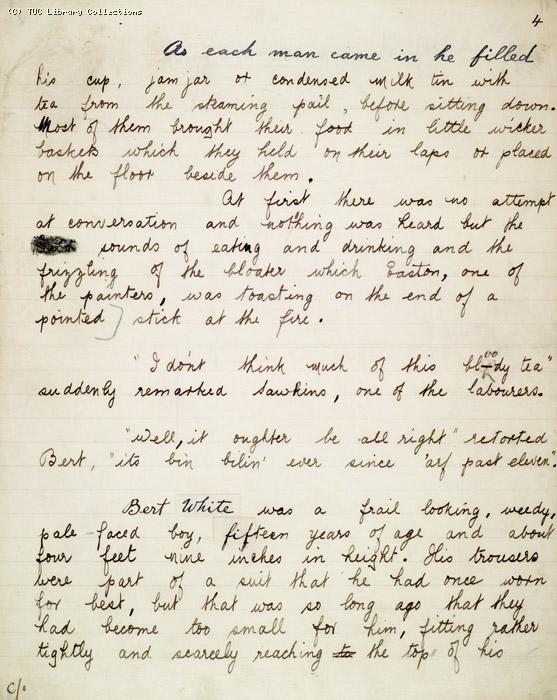 (C) TUC Library Collections
4
As each man came in he filled
his cup, jam jar or condensed milk tin with
tea from the steaming pail, before sitting down.
Most of them brought their food in little wicker
baskets which they held on their laps or placed
on the floor beside them.
At first there was no attempt
at conversation and nothing was heard but the
sounds of eating and drinking and the
frizzling of the bloater which Easton, one of
the painters, was toasting on the end of a
pointed stick at the fire.
"I don't think much of this bloody tea"
suddenly remarked Sawkins, one of the labourers.
"Well, it oughter be all right" retorted
Bert, "its bin bilin' ever since 'arf past eleven".
Bert White was a frail looking, weedy,
pale faced boy, fifteen years of age and about
four feet nine inches in height. His trousers
were part of a suit that he had once worn
for best, but that was so long ago that they
had become too small for him, fitting rather
tightly and scarcely reaching to the top of his
C/.